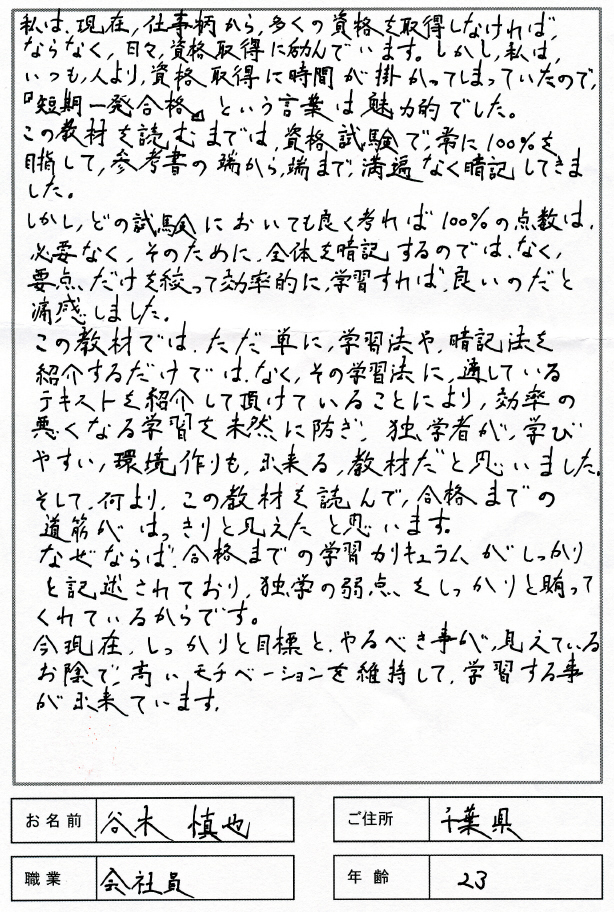 私は、現在、仕事柄から、多くの資格を取得しなければ、
ならなく、日々、資格取得に励んでいます。しかし、私は、
いつも、人より、資格取得に時間が掛かってしまっていたので、
『短期一発合格』という言葉は魅力的でした。
この教材を読むまでは、資格試験で、常に100%を
目指して、参考書の端から、端まで、満遍なく暗記してきま
した。
しかし、どの試験においても良く考れば100%の点数は、
必要なく、そのために、全体を暗記するのでは、なく、
要点だけを絞って効率的に、学習すれば、良いのだと
痛感しました。
この教材では、ただ単に、学習法や、暗記法を
紹介するだけでは、なく、その学習法に、適している
テキストを紹介して頂けていることにより、効率の
悪くなる学習を未然に防ぎ、独学者が、学び
やすい、環境作りも、出来る、教材だと思いました。
そして、何より、この教材を読んで、合格までの
道筋がはっきりと見えたと思います。
なぜならば、合格までの学習カリキュラムがしっかり
と記述されており、独学の弱点をしっかりと賄って
くれているからです。
今現在、しっかりと目標と、やるべき事が、見えている
お陰で、高いモチベーションを維持して、学習する事
が出来ています。
お名前 谷木 慎也
ご住所 千葉県
職業 会社員
年齢 23